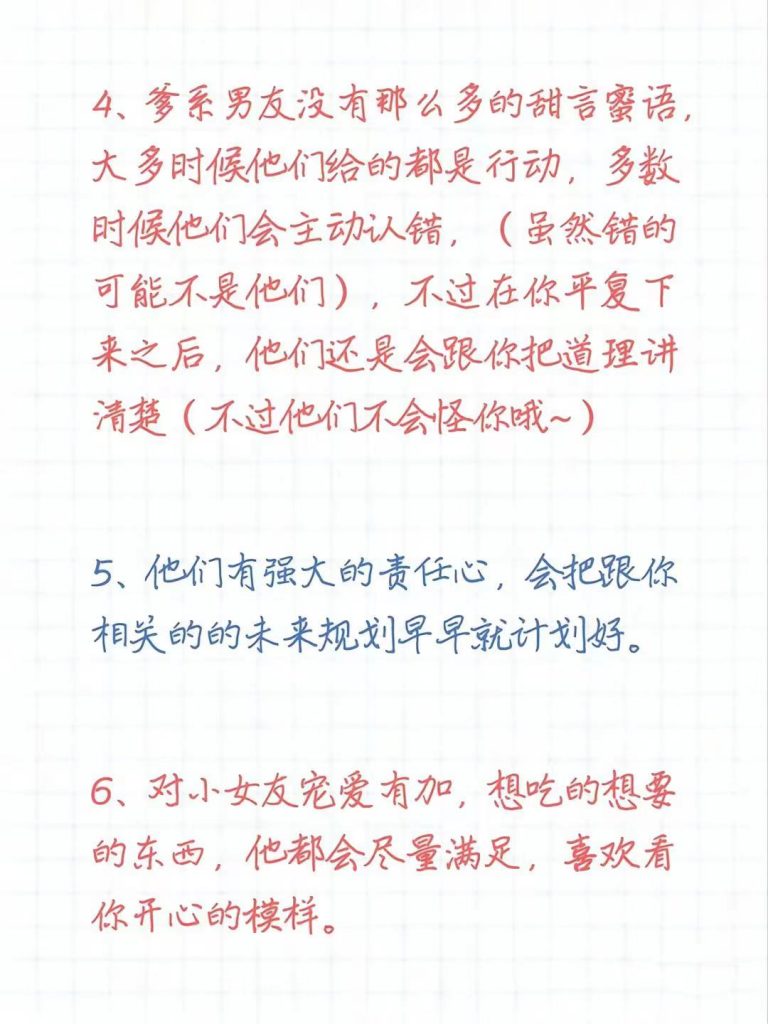 4、爹系男友没有那么多的甜言蜜语，
大多时候他们给的都是行动，多数
时候他们会主动认错，（虽然错的
可能不是他们），不过在你平复下
来之后，他们还是会跟你把道理讲
清楚（不过他们不会怪你哦~）
5、他们有强大的责任心，会把跟你
相关的的未来规划早早就计划好。
6、对小女友宠爱有加，想吃的想要
的东西，他都会尽量满足，喜欢看
你开心的模样。